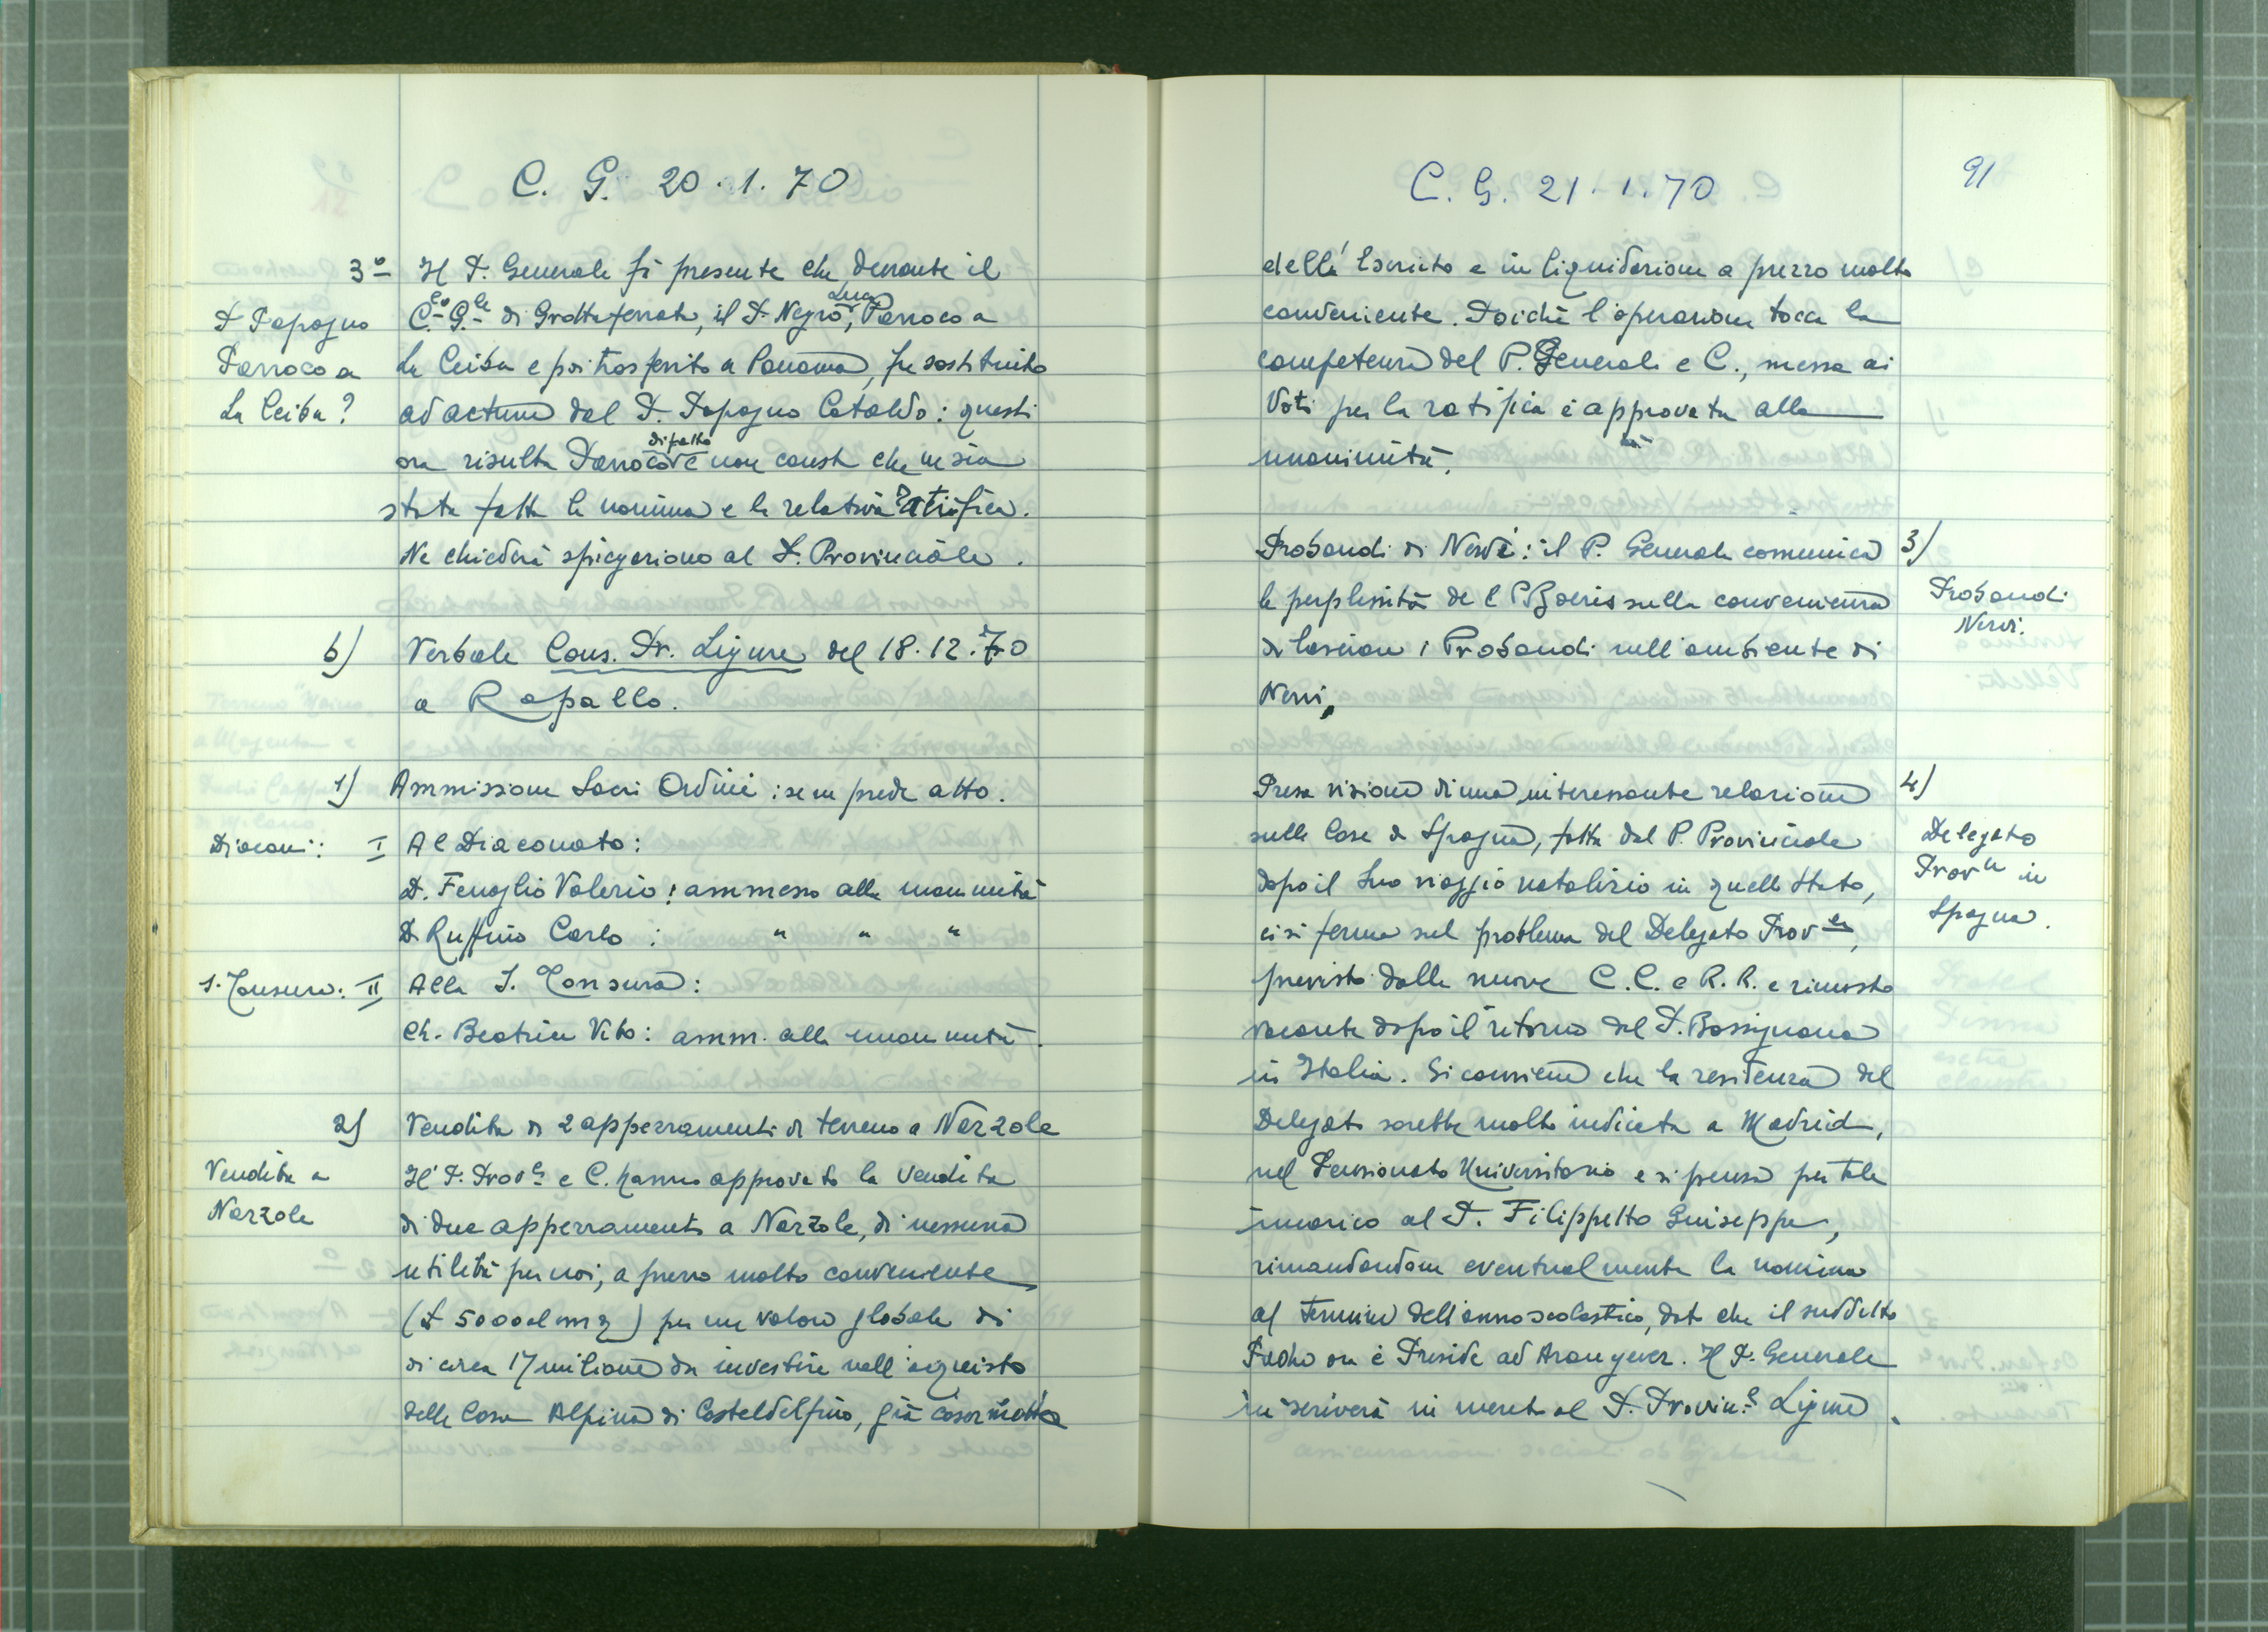 C. G. 20.1.70
3º Il P. Generale fa presente che durante il
P. Papagno
Parroco a
La Ceiba?
C.º G.le di Grottaferrata, il P. Negro Luca, Parroco a
La Ceiba e poi trasferito a Panama, fu sostituito
ad actum dal P. Papagno Cataldo: questi
ora risulta Parroco di fatto e non consta che ne sia
stata fatta la nomina e la relativa ratifica.
Ne chiederà spiegazione al P. Provinciale.
b) Verbale Cons. Pr. Ligure del 18.12.70
a Rapallo.
1) Ammissione Sacri Ordini: se ne prede atto.
Diaconi: I Al Diaconato:
D. Fenoglio Valerio: ammesso alla unanimità
D. Ruffino Carlo: " " "
S. Tonsura: II Alla S. Tonsura:
Ch. Beatrice Vito: amm. alla unanimità.
2) Vendita di 2 apperramenti di terreno a Narzole
Vendita a
Narzole
Il P. Prov.le e C. hanno approvato la vendita
di due apperramenti a Narzole, di nessuna
utilità per noi, a prezzo molto conveniente
(£ 5000 al mq) per un valore globale di
di circa 17 milione da investire nell'acquisto
della Casa Alpina di Casteldelfino, già casermetta
C. G. 21.1.70
91
dell'Esercito e in liquidazione a prezzo molto
conveniente. Poichè l'operazione tocca la
competenza del P. Generale e C., messa ai
Voti per la ratifica è approvata alla
unanimità.
Probandi di Nervi: il P. Generale comunica 3)
Probandi
Nervi.
le perplessità del P. Boeris sulla convenienza
di lasciare i Probandi nell'ambiente di
Nervi.
Presa visione di una interessante relazione 4)
Delegato
Prov.le in
Spagna.
sulle Case di Spagna, fatta dal P. Provinciale
dopo il suo viaggio natalizio in quello Stato,
ci si ferma sul problema del Delegato Prov.le,
previsto dalle nuove C.C. e R.R. e rimasto
vacante dopo il ritorno del P. Bassignana
in Italia. Si conviene che la residenza del
Delegato sarebbe molto indicata a Madrid,
nel Pensionato Universitario e si pensa per tale
incarico al P. Filippetto Guiseppe,
rimandandone eventualmente la nomina
al termine dell'anno scolastico, dato che il suddetto
Padre ora è Preside ad Aranguez. Il P. Generale
scriverà in merito al P. Provin.le Ligure.